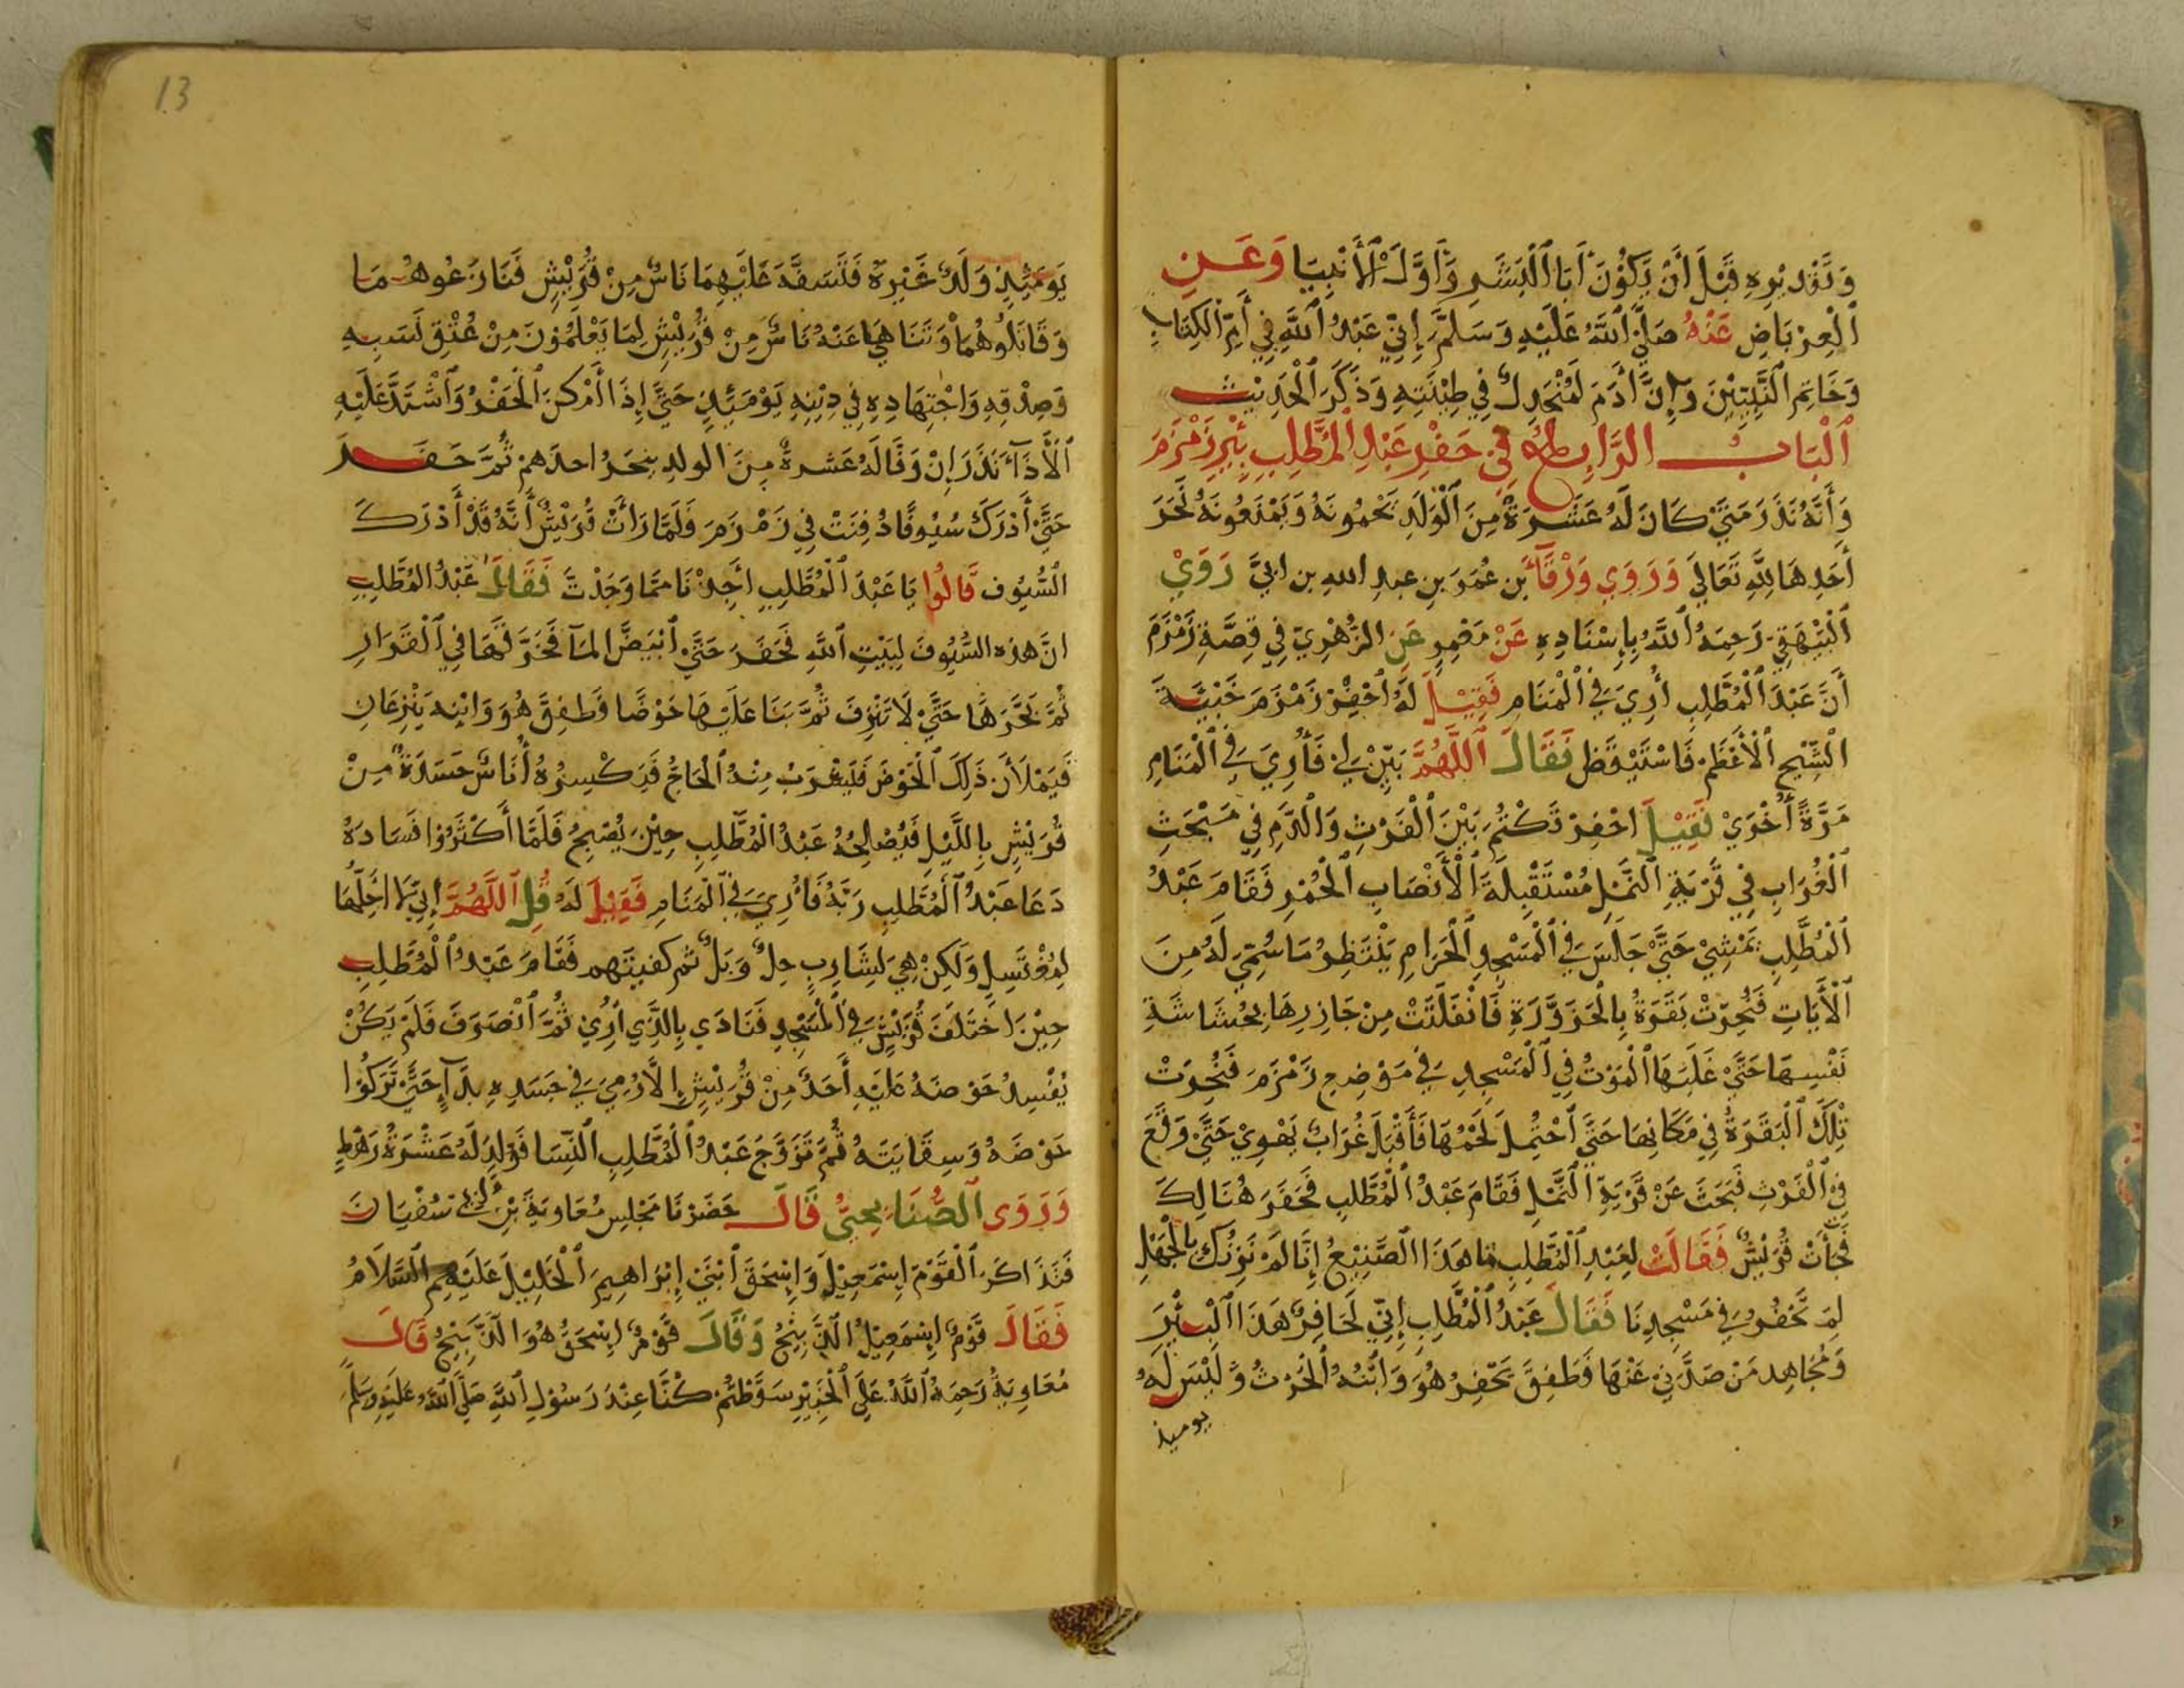 وَتَقْدِيْرِهِ قَبْلَ أَنْ يَكُوْنَ أَبَا ٱلْبَشَرِ وَأَوَّلَ ٱلْأَنْبِيَا وَعَنِ
ٱلْعِرْبَاضِ عَنْهُ صَلَّى ٱللَّهُ عَلَيْهِ وَسَلَّمَ إِنِّي عَبْدُ ٱللَّهِ فِي أُمِّ ٱلْكِتَابِ
وَخَاتِمُ ٱلنَّبِيِّيْنَ وَإِنَّ أَدَمَ لَمُنْجَدِلٌ فِي طِيْنَتِهِ وَذَكَرَ ٱلْحَدِيْث
ٱلْبَابُ الرَّابِعُ فِي حَفْرِ عَبْدِ ٱلْمُطَّلِبِ بِئْرِ زَمْزَمَ
وَأَنَّهُ نَذَرَ مَتَيْ كَانَ لَهُ عَشَرَةٌ مِنَ ٱلْوَلَدِ يَحْمُونَهُ وَيَمْنَعُونَهُ نَحَرَ
أَحَدِهَا لِلَّهِ تَعَالَي وَرَوَي وَرْقَآءُ بن عُمَرَ بنِ عبدِ الله بن ابيَّ رَوَيْ
ٱلْبَيْهَقِيّ رَحِمَهُ ٱللَّهُ بِإِسْنَادِهِ عَنْ مَعْمِرٍ عَنِ الزُّهْرِيّ فِي قِصَّةِ زَمْزَمَ
أَنَّ عَبْدَ ٱلْمُطَّلِبِ أُرِيَ فِي ٱلْمَنَامِ فَقِيْلَ لَهُ ٱحْفِرْ زَمْزَمَ خَبْيَّةَ
ٱلشَّيْخِ ٱلْأَعْظَمِ فَاسْتَيْقَظ فَقَالَ ٱللَّهُمَّ بَيِّنْ لِي فَأُرِيَ فِي ٱلْمَنَامِ
مَرَّةً أُخْرَيْ فَقِيْلَ احْفِرْ تَكْتُمَ بَيْنَ ٱلْفَرْثِ وَالْدَّمِ فِي مَبْحَثِ
ٱلْغُرَابِ فِي قَرْيَةِ ٱلنَّمْلِ مُسْتَقْبِلَةَ ٱلْأَنْصَابِ ٱلْحُمْرِ فَقَامَ عَبْدُ
ٱلْمُطَّلِبِ يَمْشِيْ حَتَّيْ جَلَسَ فِي ٱلْمَسْجِدِ ٱلْحَرَامِ يَنْتَظِرُ مَا سُمِّيَ لَهُ مِنَ
ٱلْأَيَاتِ فَنُحِرَتْ بَقَرَةُ بِالْحَزَوَّرَةِ فَانْفَلَتَتْ مِنْ جَازِرِهَا بِحُشَاشَةِ
نَفْسِهَا حَتَّيْ غَلَبَهَا ٱلْمَوْتُ فِي ٱلْمَسْجِدِ فِي مَوْضِعِ زَمْزَمَ فَنُحِرَتْ
تِلْكَ ٱلْبَقَرَةُ فِي مَكَانِهَا حَتَّى ٱحْتُمِلَ لَحْمُهَا فَأَقْبَلَ غُرَابٌ يَهْوِيْ حَتَّيْ وَقَعَ
فِي ٱلْفَرْثِ فَبَحَثَ عَنْ قَرْيَةِ ٱلنَّمْلِ فَقَامَ عَبْدُ ٱلْمُطَّلِبِ فَحَفَرَ هُنَالِكَ
فَجَآئَتْ قُرَيْشٌ فَقَالَتْ لِعَبْدِ ٱلْمُطَّلِبِ مَا هَذَا ٱلصَّنِيْعُ إِنَّا لَمْ نَزُنّكَ بِالْجَهْلِ
لِمَ تَحْفُرُ فِي مَسْجِدِنَا فَقَالَ عَبْدُ ٱلْمُطَّلِبِ إِنِّي لَحَافِرٌ هَذَا ٱلْبِئْرَ
وَمُجَاهِد مَنْ صَدَّنِي عَنْهَا فَطَفِقَ يَحْفِرُ هُوَ وَابْنُهُ ٱلْحَرْثُ وَلَيْسَ لَهُ
يوميذ
يَوْمَئِذٍ وَلَدٌ غَيْرِهُ فَتَسَفَّهَ عَلَيْهِمَا نَاسٌ مِنْ قُرَيْشٍ فَنَازَعُوهُمَا
وَقَاتَلُوهُمَا وَتَنَاهَيَ عَنْهُ نَاسٌ مِنْ قُرَيْشٍ لِمَا يَعْلَمُوْنَ مِنْ عُتْقِ نَسَبِهِ
وَصِدْقِهِ وَاجْتِهَادِهِ فِي دِيْنِهِ يَوْمَئِذٍ حَتَّيَ إِذَا أَمْكَنَ ٱلْحَفْرُ وَٱشْتَدَّ عَلَيْهِ
ٱلْأَذَآءُ نَذَرَ إِنْ وَفَّا لَهُ عَشرةٌ مِنَ الولدِ ينحَرُ احدَهمْ ثُمَّ حَفَرَ
حَتَّيْ أَدْرَكَ سُيُوفًا دُفِنَتْ فِي زَمْزَمَ فَلَمَّا رَاتْ قُرَيْشٌ أَنَّهُ قَدْ أَدْرَكَ
الْسُّيُوف قَالُوا يَا عَبْدَ ٱلْمُطَّلِبِ أَجِدْنَا مِمَّا وَجَدْتَ فَقَالَ عَبْدُ المُطَّلِبِ
انَّ هذه السُّيُوفَ لِبَيْتِ ٱللَّهِ فَحَفَرَ حَتَّيْ ٱنْبَيضَّ المَآ فَخَرَقَهَا فِي ٱلْقَرَارِ
ثُمَّ بَحَّرَهَا حَتَّيْ لَا تَنْزِفَ ثُمَّ بَنَا عَلَيْهَا حَوْضًا فَطَفِقَ هُوَ وَابْنِه يَنْزِعَانِ
فَيَمْلَأَنِ ذَلِكَ ٱلْحَوْضَ فَيَشْرَبْ مِنْهُ ٱلْحَاجُّ فَيَكْسِرُهُ أُنَاسٌ حَسَدَةٌ مِنْ
قُرَيْشٍ بِاللَّيْلِ فَيُصْلِحُهُ عَبْدُ الْمُطَّلِبِ حِيْنَ يُصْبِحُ فَلَمَّا أَكْثَرُوْا فَسَادَهُ
دَعَا عَبْدُ ٱلْمُطَّلِبِ رَبَّهُ فَأُرِيَ فِي ٱلْمَنَامِ فَقِيْلَ لَهُ قُلِ ٱللَّهُمَّ إِنِّي لَا أُحِلُّهَا
لِمُغْتَسِلٍ وَلَكِنْ هِيَ لِشَارِبٍ حِلٌّ وَبَلٌّ ثم كفيتَهم فَقَامَ عَبْدُ ٱلْمُطَّلِبِ
حِيْنَ اخْتَلَفَ قُرَيْشٍ فِي ٱلْمَسْجِدِ فَنَادَي بِالَّذِي أُرِيْ ثُمَّ ٱنْصَرَفَ فَلَمْ يَكُنْ
يُفْسِدُ حَوْضَهُ عَلَيْهِ أَحَدٌ مِنْ قُرَيْشٍ إِلَّا رُمِيَ فِي جَسَدِهِ بِدَآءٍ حَتَّيْ تَرَكُوْا
حَوْضَهُ وَسِقَايَتَهُ ثُمَّ تَزَوَّجَ عَبْدُ ٱلْمُطَّلِبِ ٱلنِّسَا فَوُلِدَ لَهُ عَشْرَةُ رَهْطٍ
وَرَوَى ٱلصُّنَابِحِيُّ قَالَ حَضَرْنَا مَجْلِسَ مُعَاوِيَةَ بْنِ أَبِي سُفْيَانَ
فَتَذَاكَرَ ٱلْقَوْمَ إِسْمَعِيْلَ وَإِسْحَقَ ٱبْنَيْ إِبْرَاهِيمَ ٱلْخَلِيْلَ عَلَيْهِم ٱلسَّلَامُ
فَقَالَ قَوْمٌ إِسْمَعِيْلُ الَّذَّبِيْحُ وَقَالَ قَوْمٌ إِسْحَقُ هُوَ الَذَّبِيْحُ قَالَ
مُعَاوِيَةُ رَحِمَهُ ٱللَّهُ عَلَى ٱلْخَبِيْرِ سَقَطْتُمْ كُنَّا عِنْدَ رَسُوْلِ ٱللَّهِ صَلَّى ٱللَّهُ عَلَيْهِ وَسَلَّمَ
13